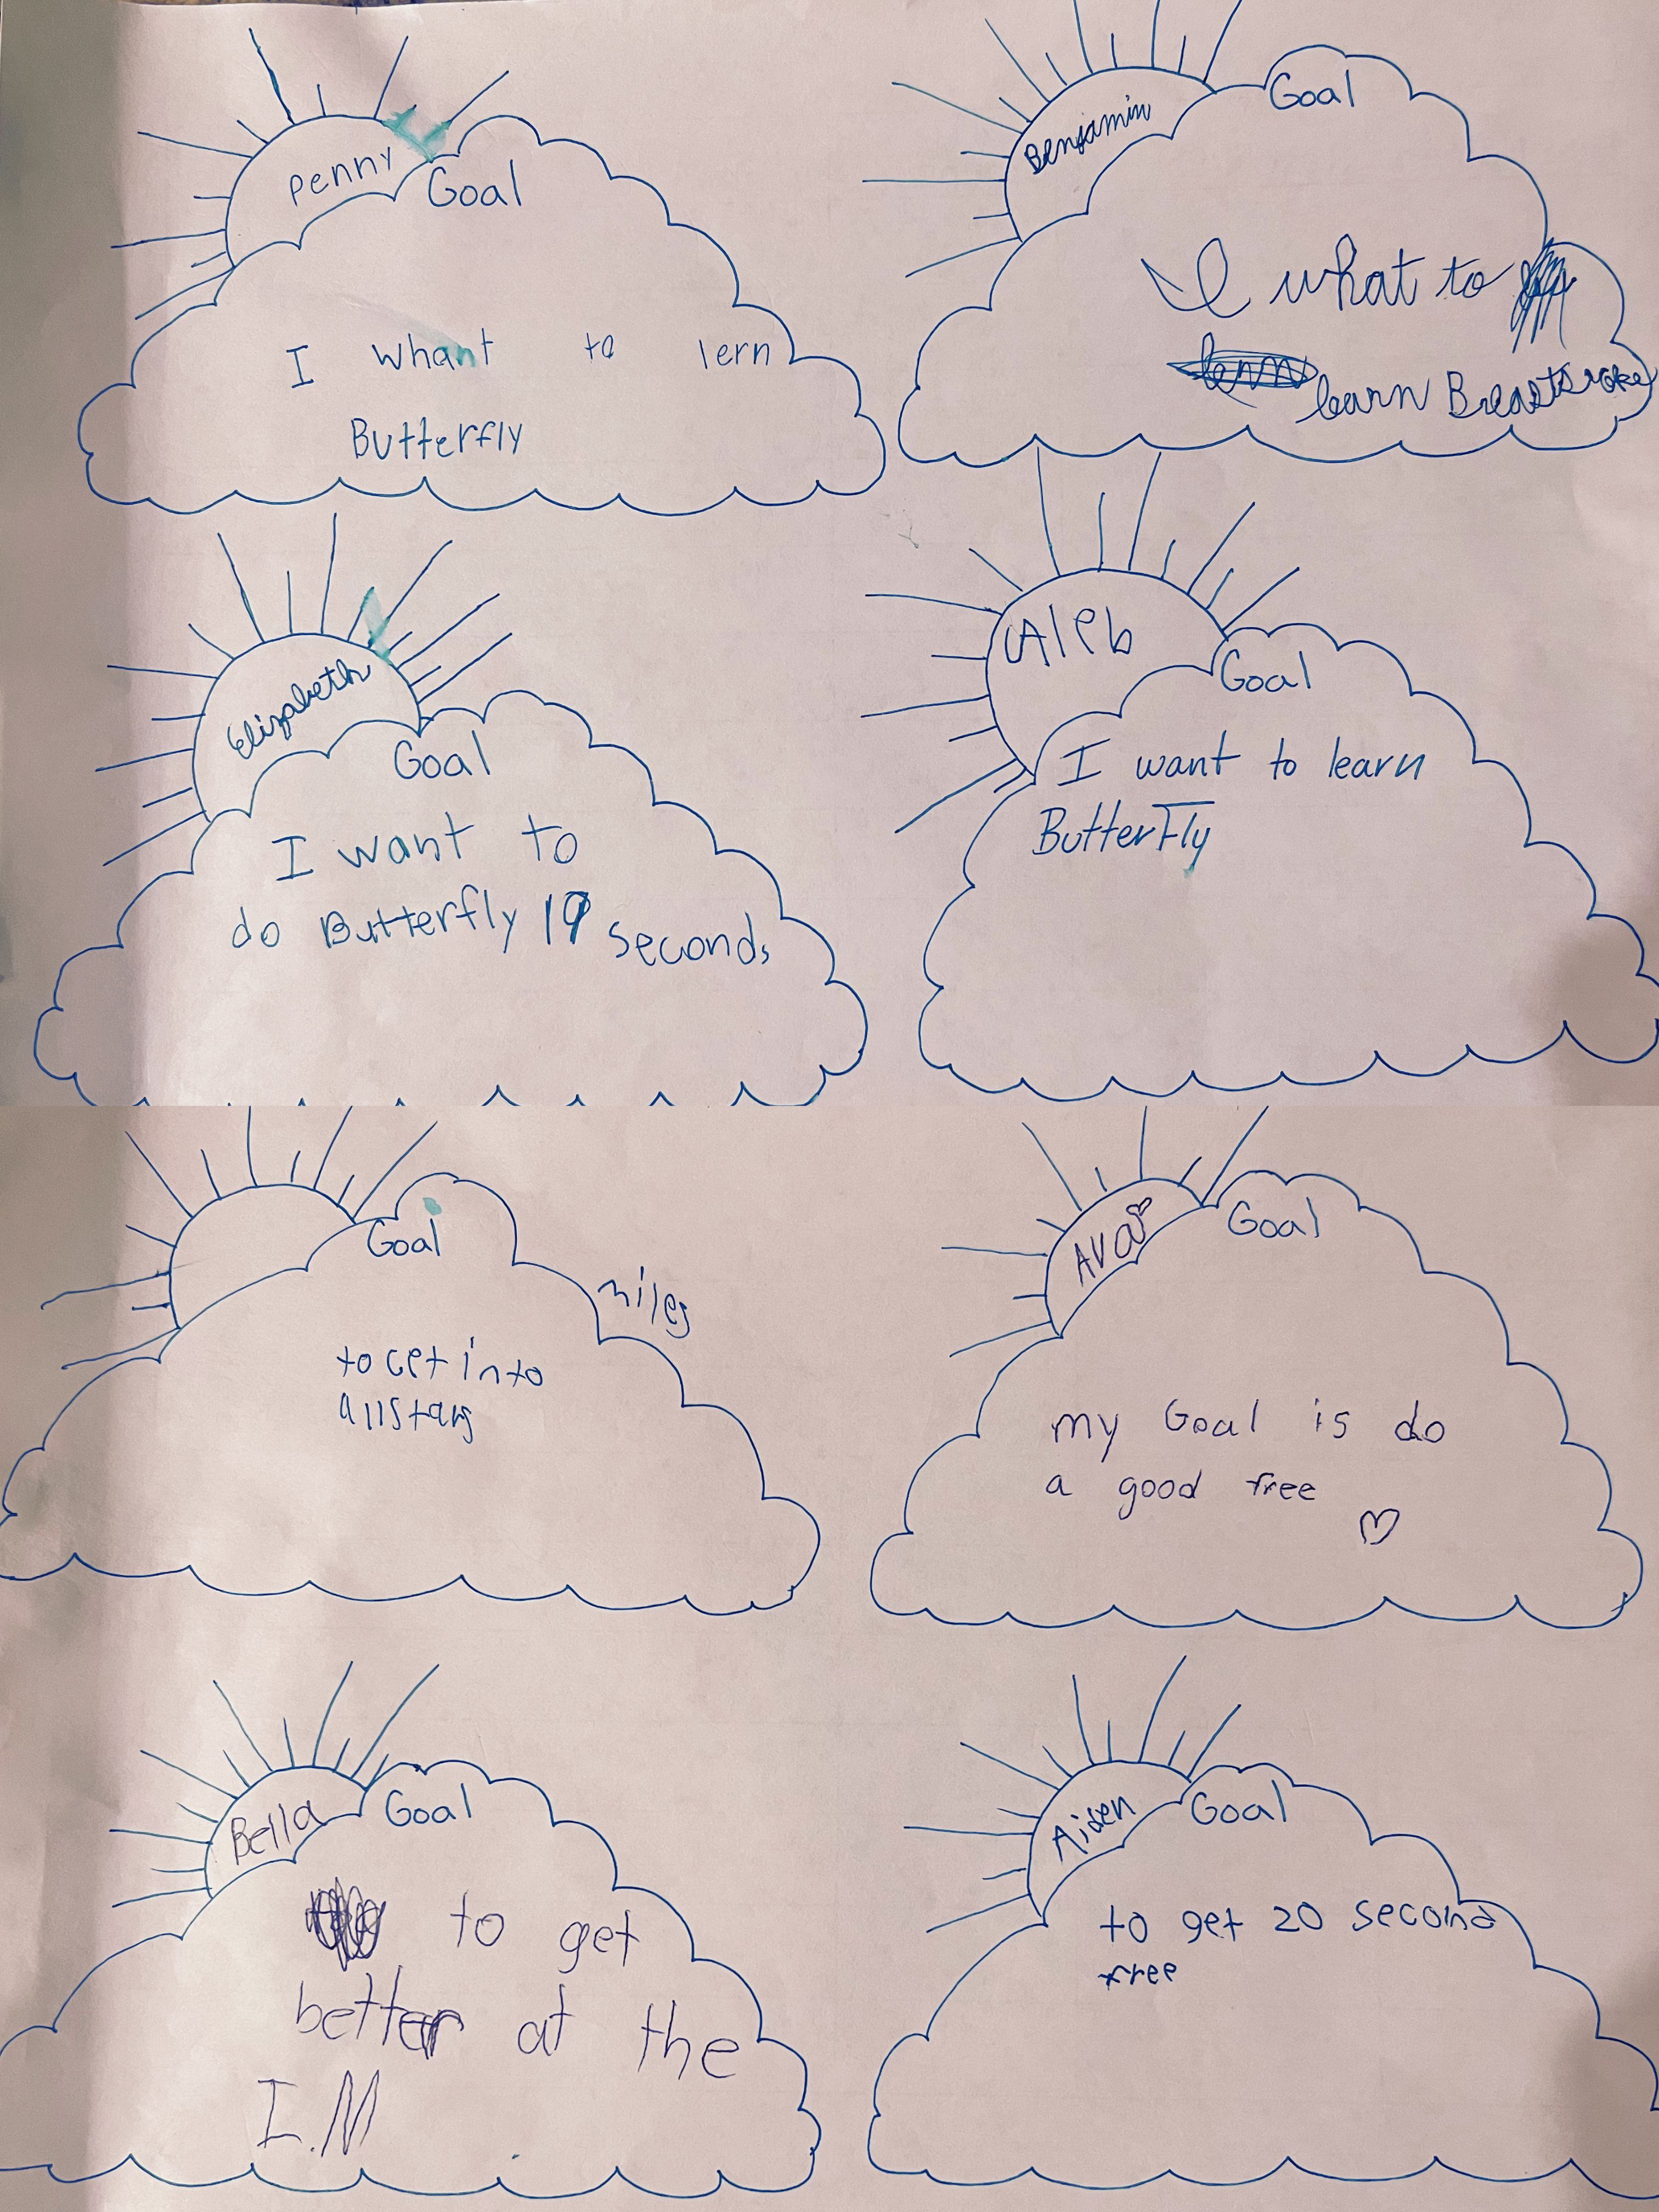 Penny
Goal
I whant to lern
Butterfly
Benjamin
Goal
I what to
lern
learn Breaststroke
Elizabeth
Goal
I want to
do Butterfly 19 seconds
CAleb
Goal
I want to learn
ButterFly
Goal
miles
to get into
allstars
AVA
Goal
my Goal is do
a good free
Bella
Goal
to get
better at the
I.M
Aiden
Goal
to get 20 second
free